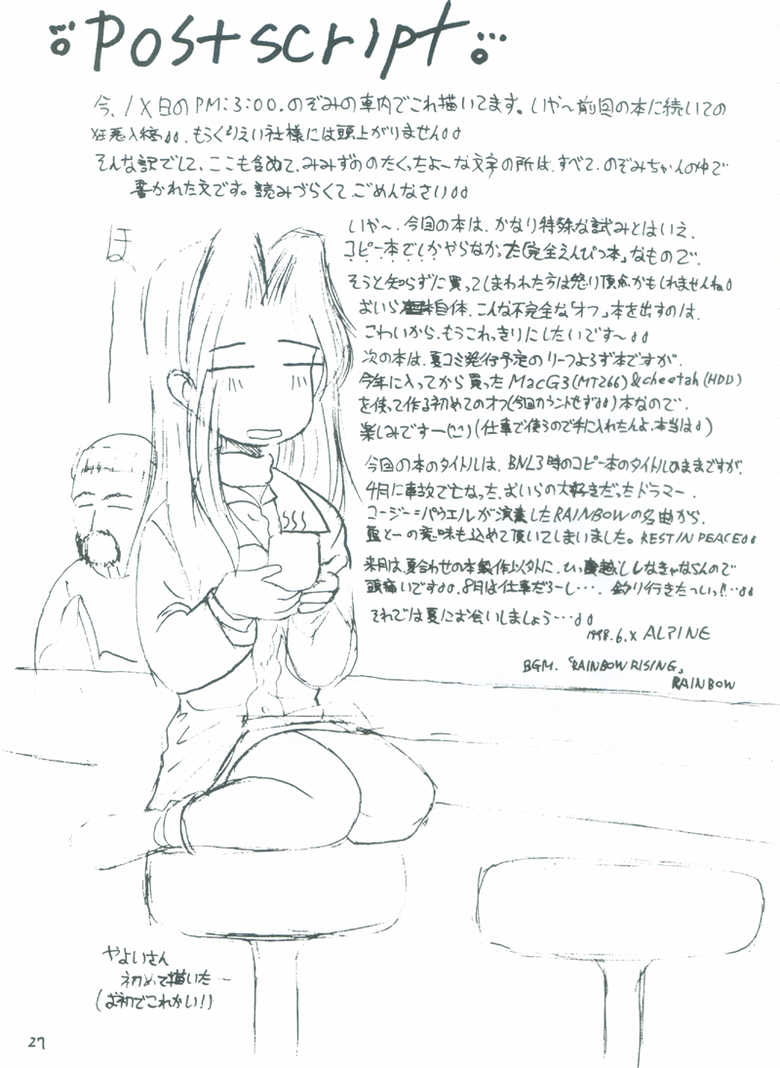 postscript
今、1X日のPM:3:00.のぞみの車内でこれ描いてます。いや〜前回の本に続いての
極悪入稿。もうくりえい社様には頭上がりません
そんな訳でして、ここも含めて、みみずののたくったよーな文字の所は、すべて、のぞみちゃんの中で
書かれた文です。読みづらくて、ごめんなさい
ほ
いや〜、今回の本は、かなり特殊な試みとはいえ、
コピー本でしかやらなかった「完全えんぴつ本」なもので、
そうと知らずに買ってしまわれた方は怒り頂点かもしれませんね。
おいら自体、こんな不完全な「オフ」本を出すのは、
こわいから、もうこれっきりにしたいです〜
次の本は、夏コミ発行予定のりーふよろず本ですが、
今年に入ってから買ったMacG3(MT266)&cheetah(HDD)
を使って作る初めてのオフ(今回カウントせず)本なので、
楽しみですー(仕事で使うので手に入れたんよ、本当は)
今回の本のタイトルは、BNL3時のコピー本のタイトルのままですが、
4月に事故で亡くなった、おいらの大好きだったドラマー、
コージー=パウエルが演奏したRAINBOWの名曲から、
の意味も込めて頂いてしまいました。REST IN PEACE
来月は、夏合わせの本製作以外に、ひっ越ししなきゃならんので
頭痛いです。8月は仕事だろーし…、釣り行きたっしっ!!…
それでは夏にお会いしましょう…
1998.6.X ALPINE
BGM.「RAINBOW RISING」
RAINBOW
やよいさん
初めて描いたー
(お初でこれかい!)
27